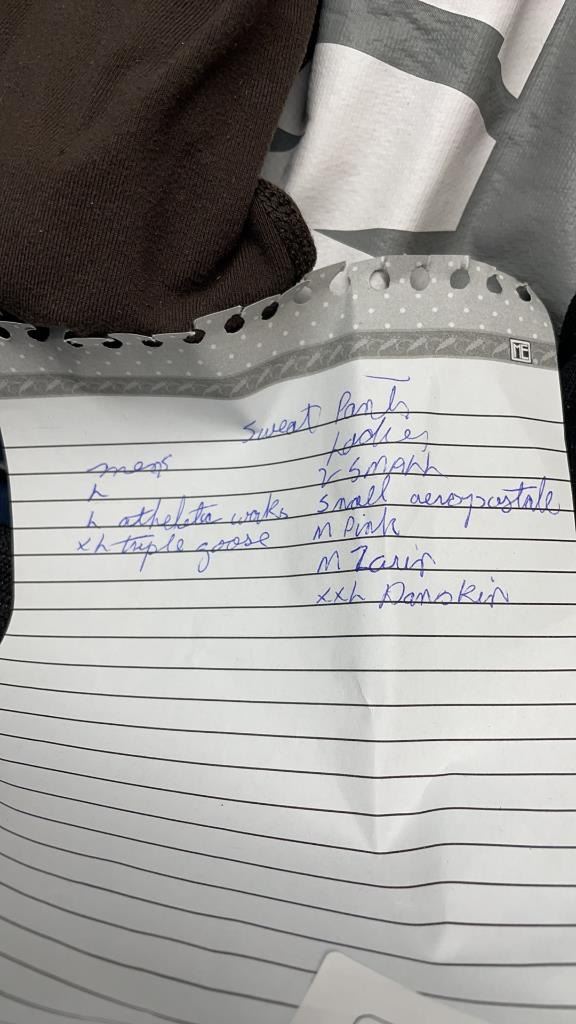 ME
Sweat Pants
mens
L
L atheletic works
XL triple goose
ladies
2 SMALL
small aeropostale
M Pink
M
XXL Danskin